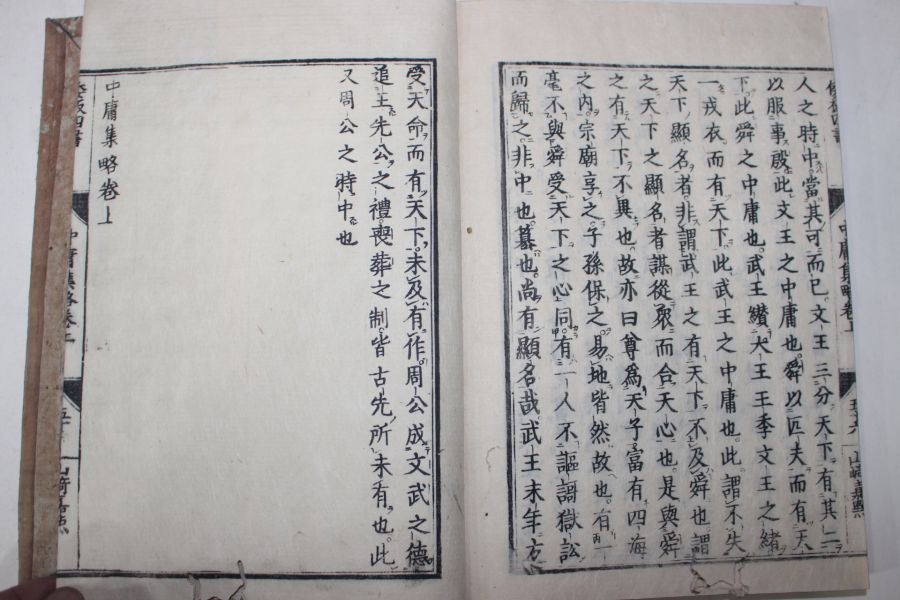 人之時中當其可而已文王三分天下有其二
以服事殷此文王之中庸也舜以匹夫而有天
下此舜之中庸也武王纉大王王季文王之緒
一戎衣而有天下此武王之中庸也此謂不失
天下顯名者非謂武王之有天下不及舜也謂
之天下之顯名者謀從衆而合天心也是與舜
之有天下不異也故亦曰尊爲天子富有四海
之内宗廟享之子孫保之易地皆然故也有一
毫不與舜受天下之心同有一人不謳謌獄訟
而歸之非中也墓也尚有顯名哉武王末年方
受天命而有天下未及有作周公成文武之德
追王先公之禮喪葬之制皆古先所未有也此
又周公之時中也
中庸集略卷上